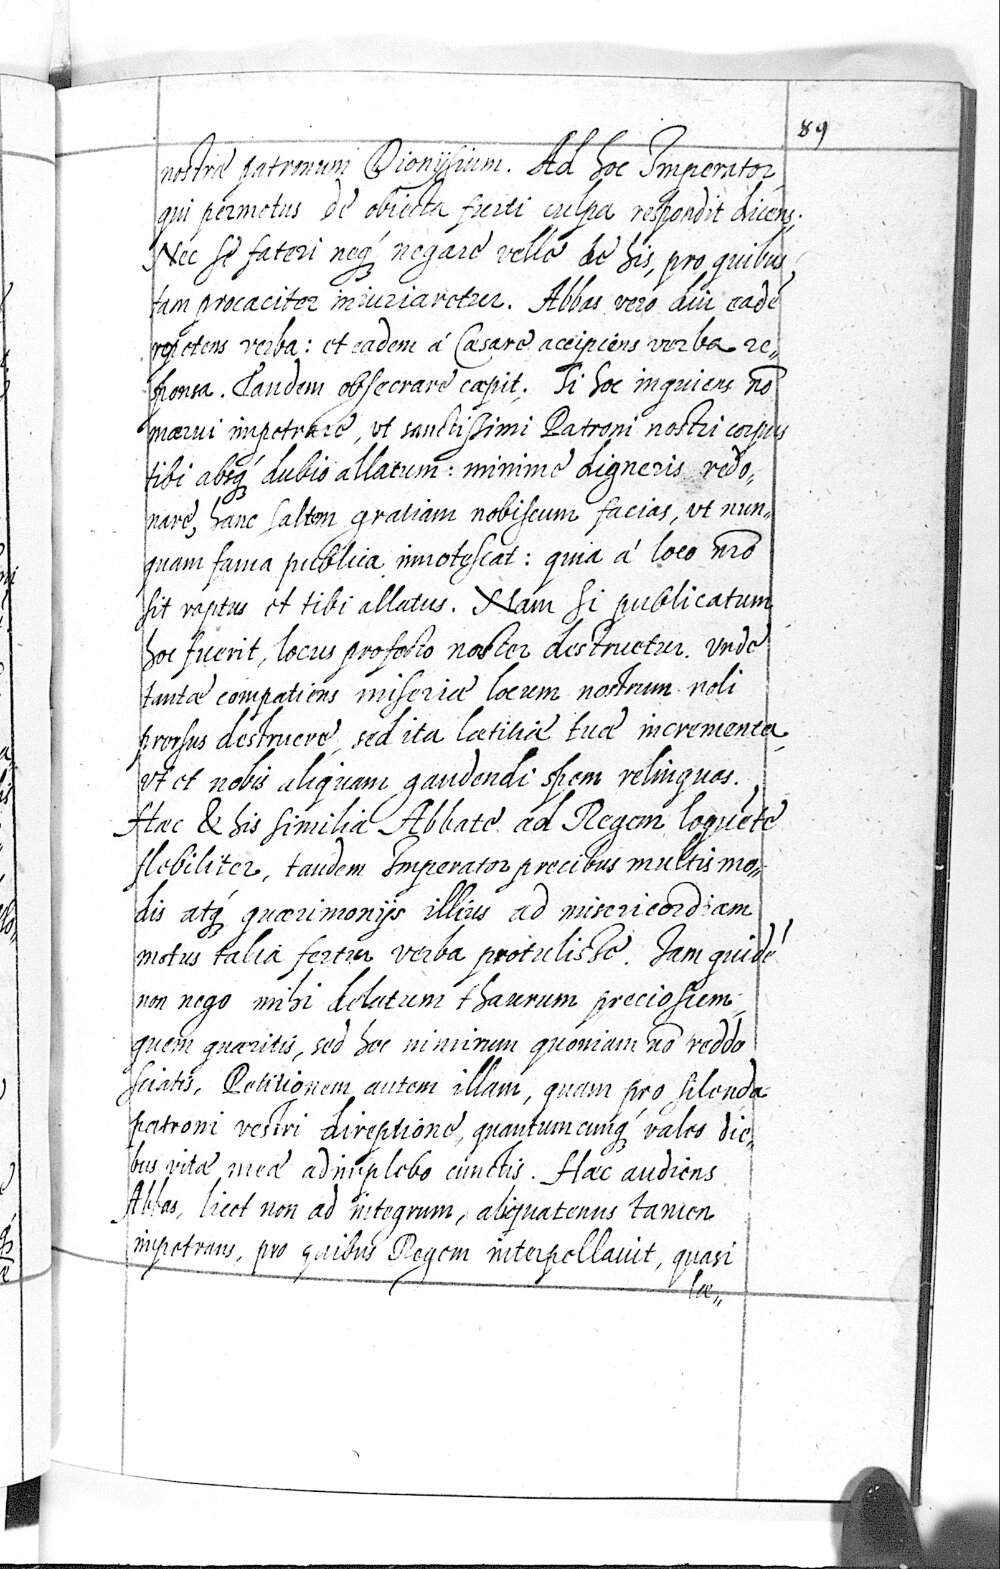 89
nostræ patronum Dionijsium. Ad hoc Imperator
qui permotus de obiecta furti culpa respondit dicens:
Nec se fateri neq́ negare velle de his, pro quibus
tam procaciter iniuriaretur. Abbas vero diu eadē
repetens verba: et eadem á Cæsare accipiens verba re„
sponsa. Tandem obsecrare cæpit. Si hoc inquiens nō
mærui impetrare, vt sanctissimi Patroni nostri corpus
tibi absq́ dubio allatum: minime digneris redo„
nare, hanc saltem gratiam nobiscum facias, vt nun„
quam fama publica innotescat: quia á loco nr̄o
sit raptus et tibi allatus. Nam si publicatum
hoc fuerit, locus profecto noster destruetur. Vnde
tantæ compatiens miseriæ locum nostrum noli
prorsus destruere, sed ita lætitiæ tuæ incrementa,
vt et nobis aliquam gaudendi spem relinquas.
Hæc & his similia Abbate ad Regem loquēte
flebiliter, tandem Imperator precibus multis mo„
dis atq́ quærimonijs illius ad misericordiam
motus talia fertur verba protulisse. Iam quidē
non nego mihi delatum thaurum preciosum,
quem quæritis, sed hoc nimirum quoniam nō reddo
sciatis, Petitionem autem illam, quam pro silenda
patroni vestri direptione, quantumcunq́ valeo die„
bus vitæ meæ adimplebo cunctis. Hæc audiens
Abbas, licet non ad integrum, aliquatenus tamen
impetrans, pro quibus Regem interpellauit, quasi
læ„